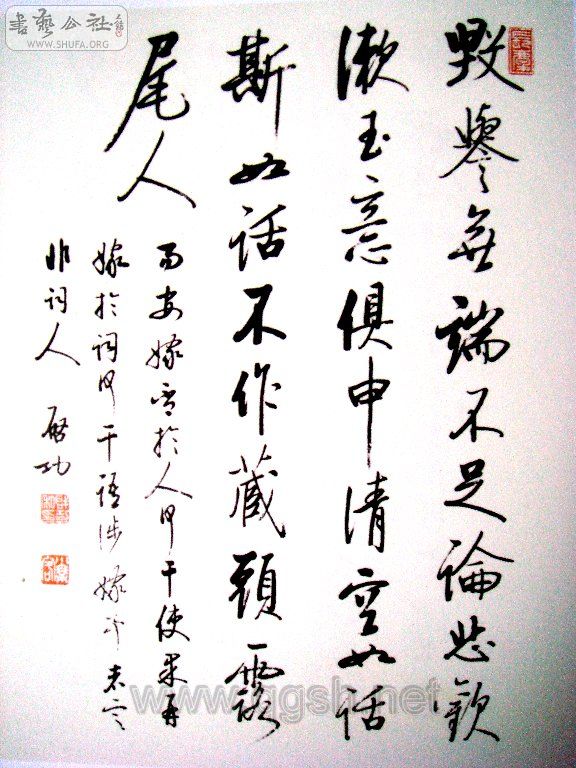 書藝公社
WWW.SHUFA.ORG
毀譽無端不足論悲歡
漱玉意俱申清空如話
斯如話不作藏頭露
尾人
易安嫁否於人何干使果再
嫁於詞何干語涉嫁者定
非詞人 啟功
www.qgsh.net